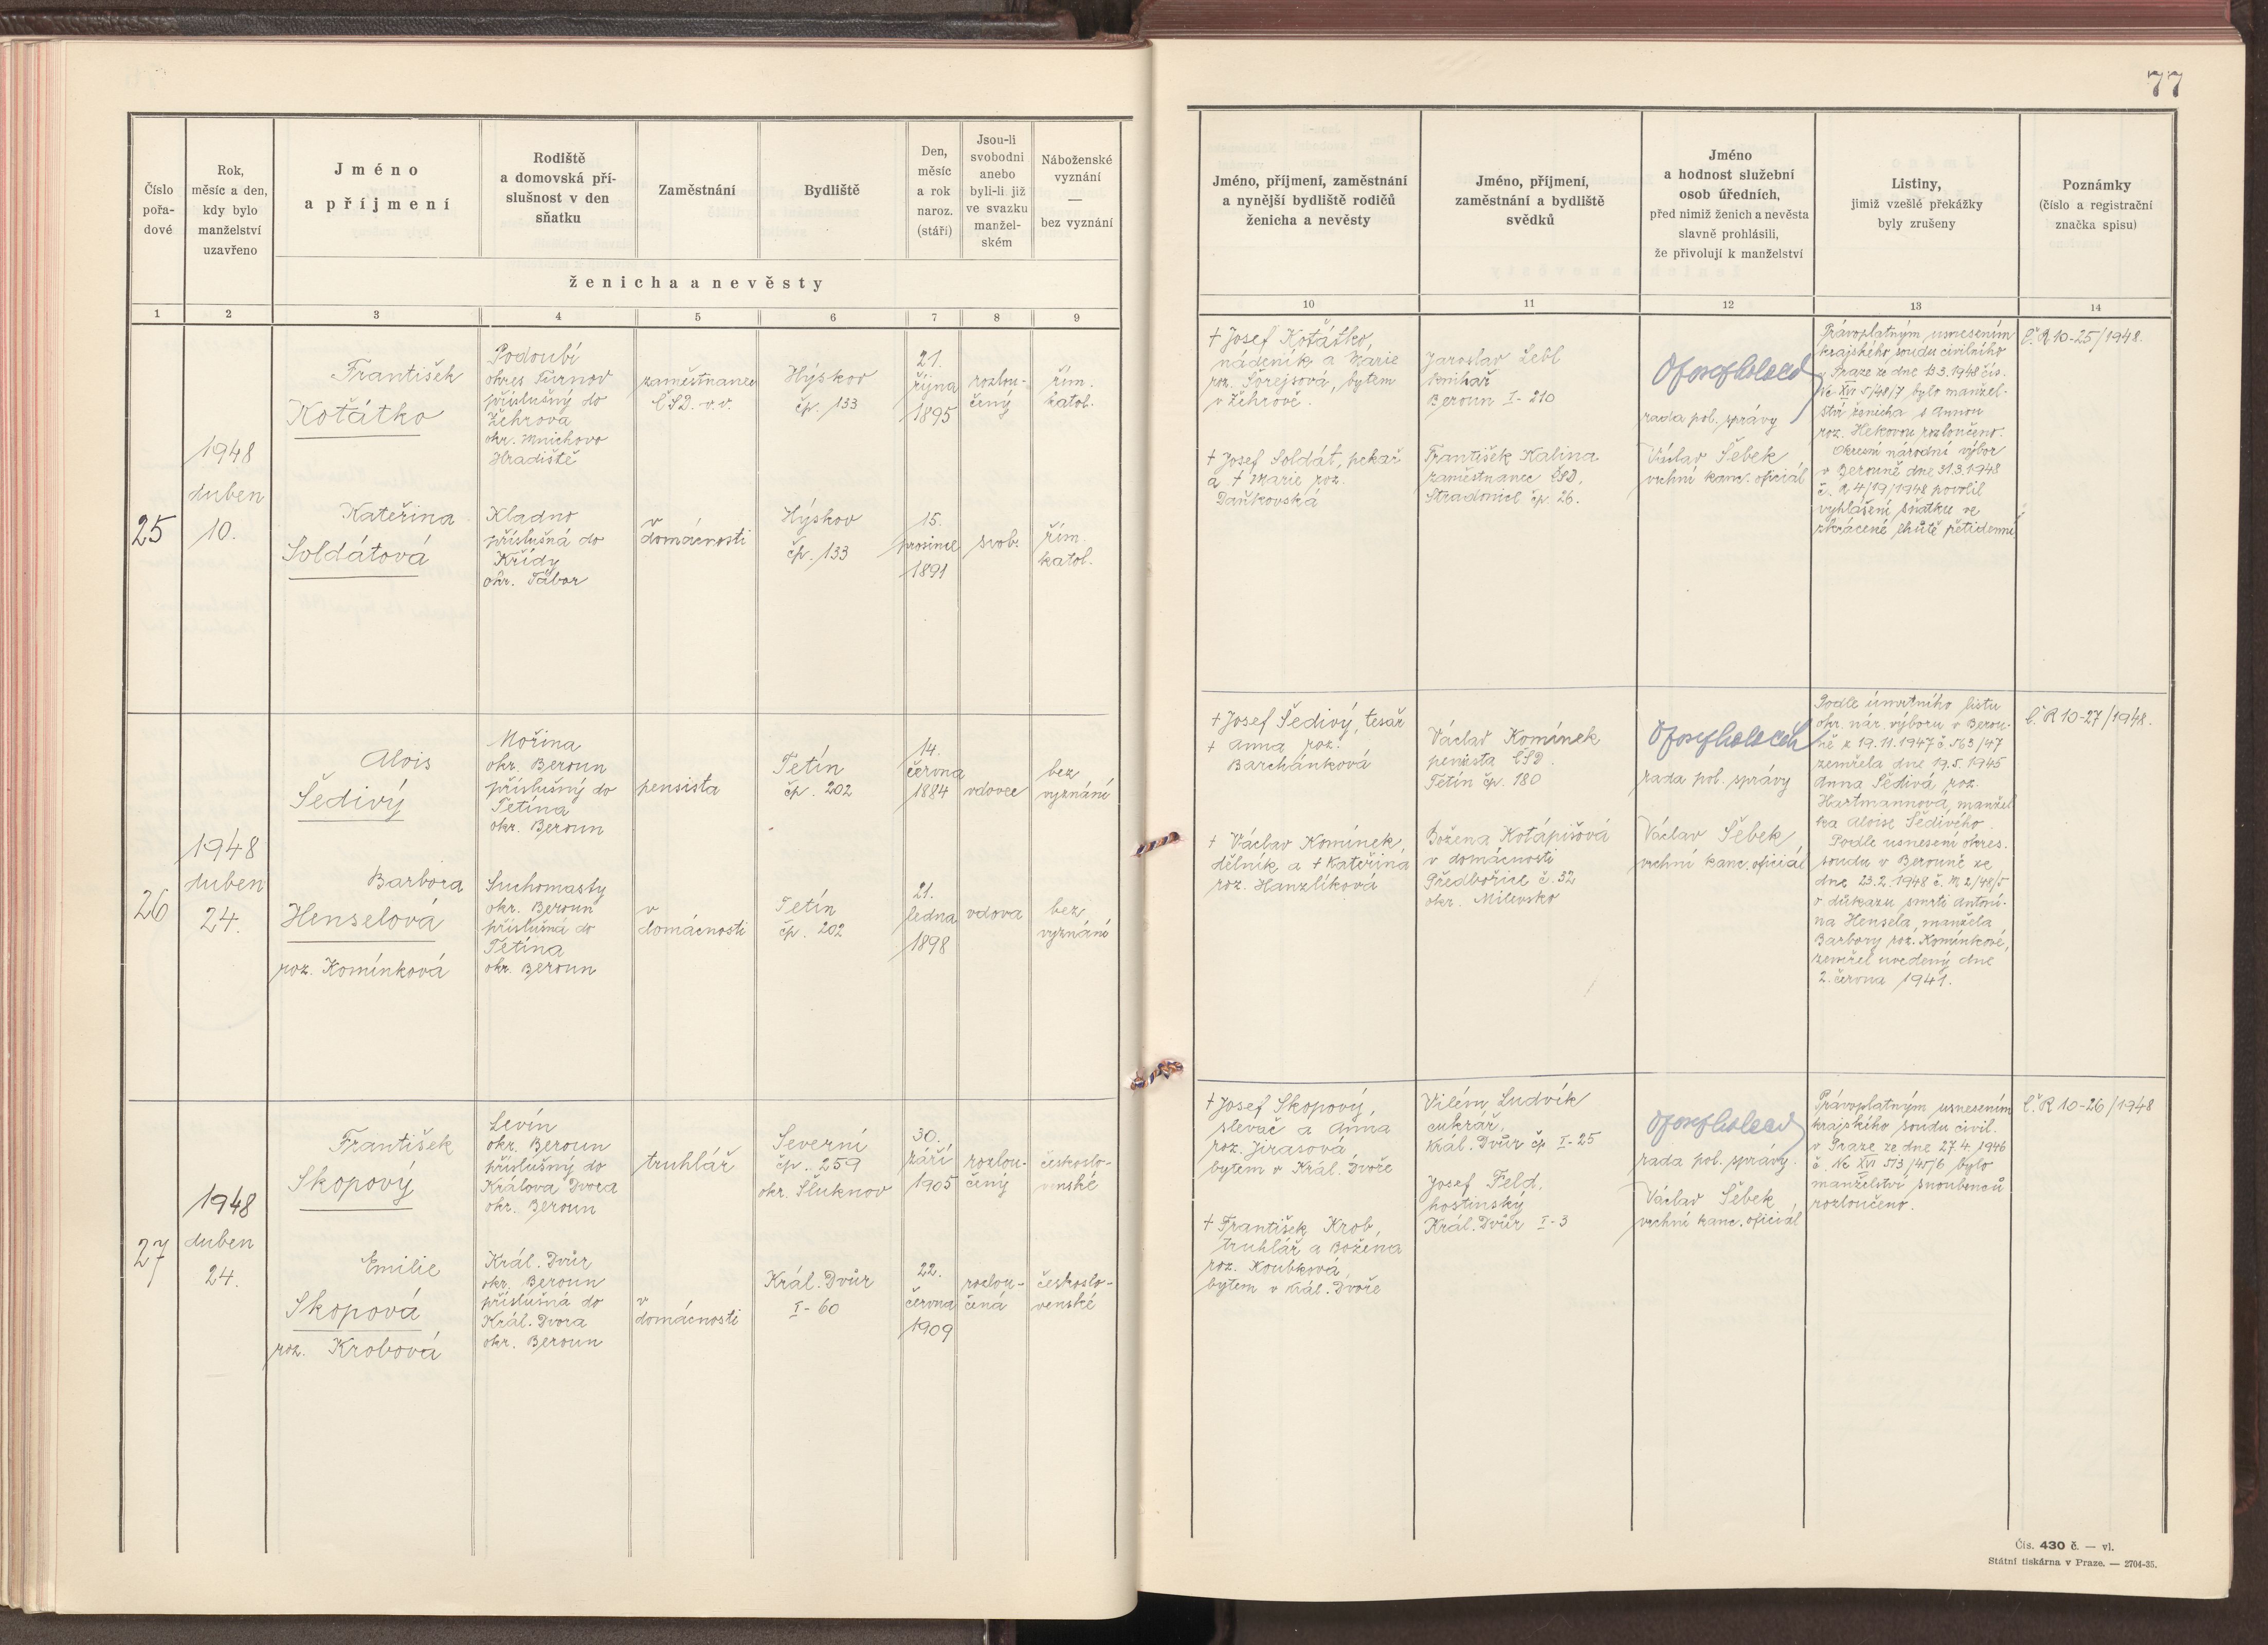 77
Číslo
pořa-
dové
Rok,
měsíc a den,
kdy bylo
manželství
uzavřeno
Jméno
a příjmení
Rodiště
a domovská pří-
slušnost v den
sňatku
Zaměstnání
Bydliště
Den,
měsíc
a rok
naroz.
(stáří)
Jsou-li
svobodni
anebo
byli-li již
ve svazku
manžel-
ském
Náboženské
vyznání
—
bez vyznání
ženicha a nevěsty
1 2 3 4 5 6 7 8 9
Jméno, příjmení, zaměstnání
a nynější bydliště rodičů
ženicha a nevěsty
Jméno, příjmení,
zaměstnání a bydliště
svědků
Jméno
a hodnost služební
osob úředních,
před nimiž ženich a nevěsta
slavně prohlásili,
že přivolují k manželství
Listiny,
jimiž vzešlé překážky
byly zrušeny
Poznámky
(číslo a registrační
značka spisu)
10 11 12 13 14
25
1948
duben
10.
František
Koťátko
Podoubí
okres Turnov
příslušný do
Žehrova
okr. Mnichovo
Hradiště
zaměstnanec
ČSD. v.v.
Hýskov
čp. 133
21.
října
1895
rozlou-
čený
řím.
katol.
Kateřina
Soldátová
Kladno
příslušná do
Křídy
okr. Tábor
v
domácnosti
Hýskov
čp. 133
15.
prosince
1891
svob.
řím.
katol.
† Josef Koťátko,
nádeník a Marie
roz. Šorejsová, bytem
v Žehrově.
† Josef Soldát, pekař
a † Marie roz.
Daňkovská
Jaroslav Lebl
knihař
Beroun I-210
František Kalina
zaměstnanec ČSD,
Stradonice čp. 26.
rada pol. správy
Václav Šebek,
vrchní kanc. oficiál
Právoplatným usnesením
krajského soudu civilního
v Praze ze dne 13.3.1948 čís.
Nc XVI 5/48/7 bylo manžel-
ství ženicha s Annou
roz. Hekovou rozloučeno.
Okresní národní výbor
v Berouně dne 31.3.1948
č. R 4/19/1948 povolil
vyhlášení sňatku ve
zkrácené lhůtě pětidenní
Č. R 10-25/1948.
26
1948
duben
24.
Alois
Šedivý
Mořina
okr. Beroun
příslušný do
Tetína
okr. Beroun
pensista
Tetín
čp. 202
14.
června
1884
vdovec
bez
vyznání
Barbora
Henselová
roz. Komínková
Suchomasty
okr. Beroun
příslušná do
Tetína
okr. Beroun
v
domácnosti
Tetín
čp. 202
21.
ledna
1898
vdova
bez
vyznání
† Josef Šedivý, tesař
† Anna roz.
Barchánková
† Václav Komínek,
dělník a † Kateřina
roz. Hanzlíková
Václav Komínek
pensista ČSD.
Tetín čp. 180
Božena Kotápišová
v domácnosti
Předbořice č. 32
okr. Milevsko
rada pol. správy
Václav Šebek,
vrchní kanc. oficiál
Podle úmrtního listu
okr. nár. výboru v Berou-
ně z 19.11.1947 č. 563/47
zemřela dne 19.5.1945
Anna Šedivá roz.
Hartmannová, manžel
ka Aloise Šedivého.
Podle usnesení okres.
soudu v Berouně ze
dne 23.2.1948 č. M 2/48/5
o důkazu smrti Antoní-
na Hensela, manžela
Barbory roz. Komínkové,
zemřel uvedený dne
2. června 1941.
Č. R 10-27/1948.
27
1948
duben
24.
František
Skopový
Levín
okr. Beroun
příslušný do
Králova Dvora
okr. Beroun
truhlář
Severní
čp. 259
okr. Šluknov
30.
září
1905
rozlou-
čený
českoslo-
venské
Emilie
Skopová
roz. Krobová
Král. Dvůr
okr. Beroun
příslušná do
Král. Dvora
okr. Beroun
v
domácnosti
Král. Dvůr
I-60
22.
června
1909
rozlou-
čená
českoslo-
venské
† Josef Skopový,
slevač a Anna
roz. Jirasová,
bytem v Král. Dvoře
† František Krob,
truhlář a Božena
roz. Koubková,
bytem v Král. Dvoře
Vilém Ludvík
cukrář,
Král. Dvůr čp I-25
Josef Feld,
hostinský
Král. Dvůr I-3
rada pol. správy.
Václav Šebek,
vrchní kanc. oficiál
Právoplatným usnesením
krajského soudu civil.
v Praze ze dne 27.4.1946
č. Nc XVI 513/45/6 bylo
manželství snoubenců
rozloučeno.
Č. R 10-26/1948
Čís. 430 č. — vl.
Státní tiskárna v Praze. — 2704-35.